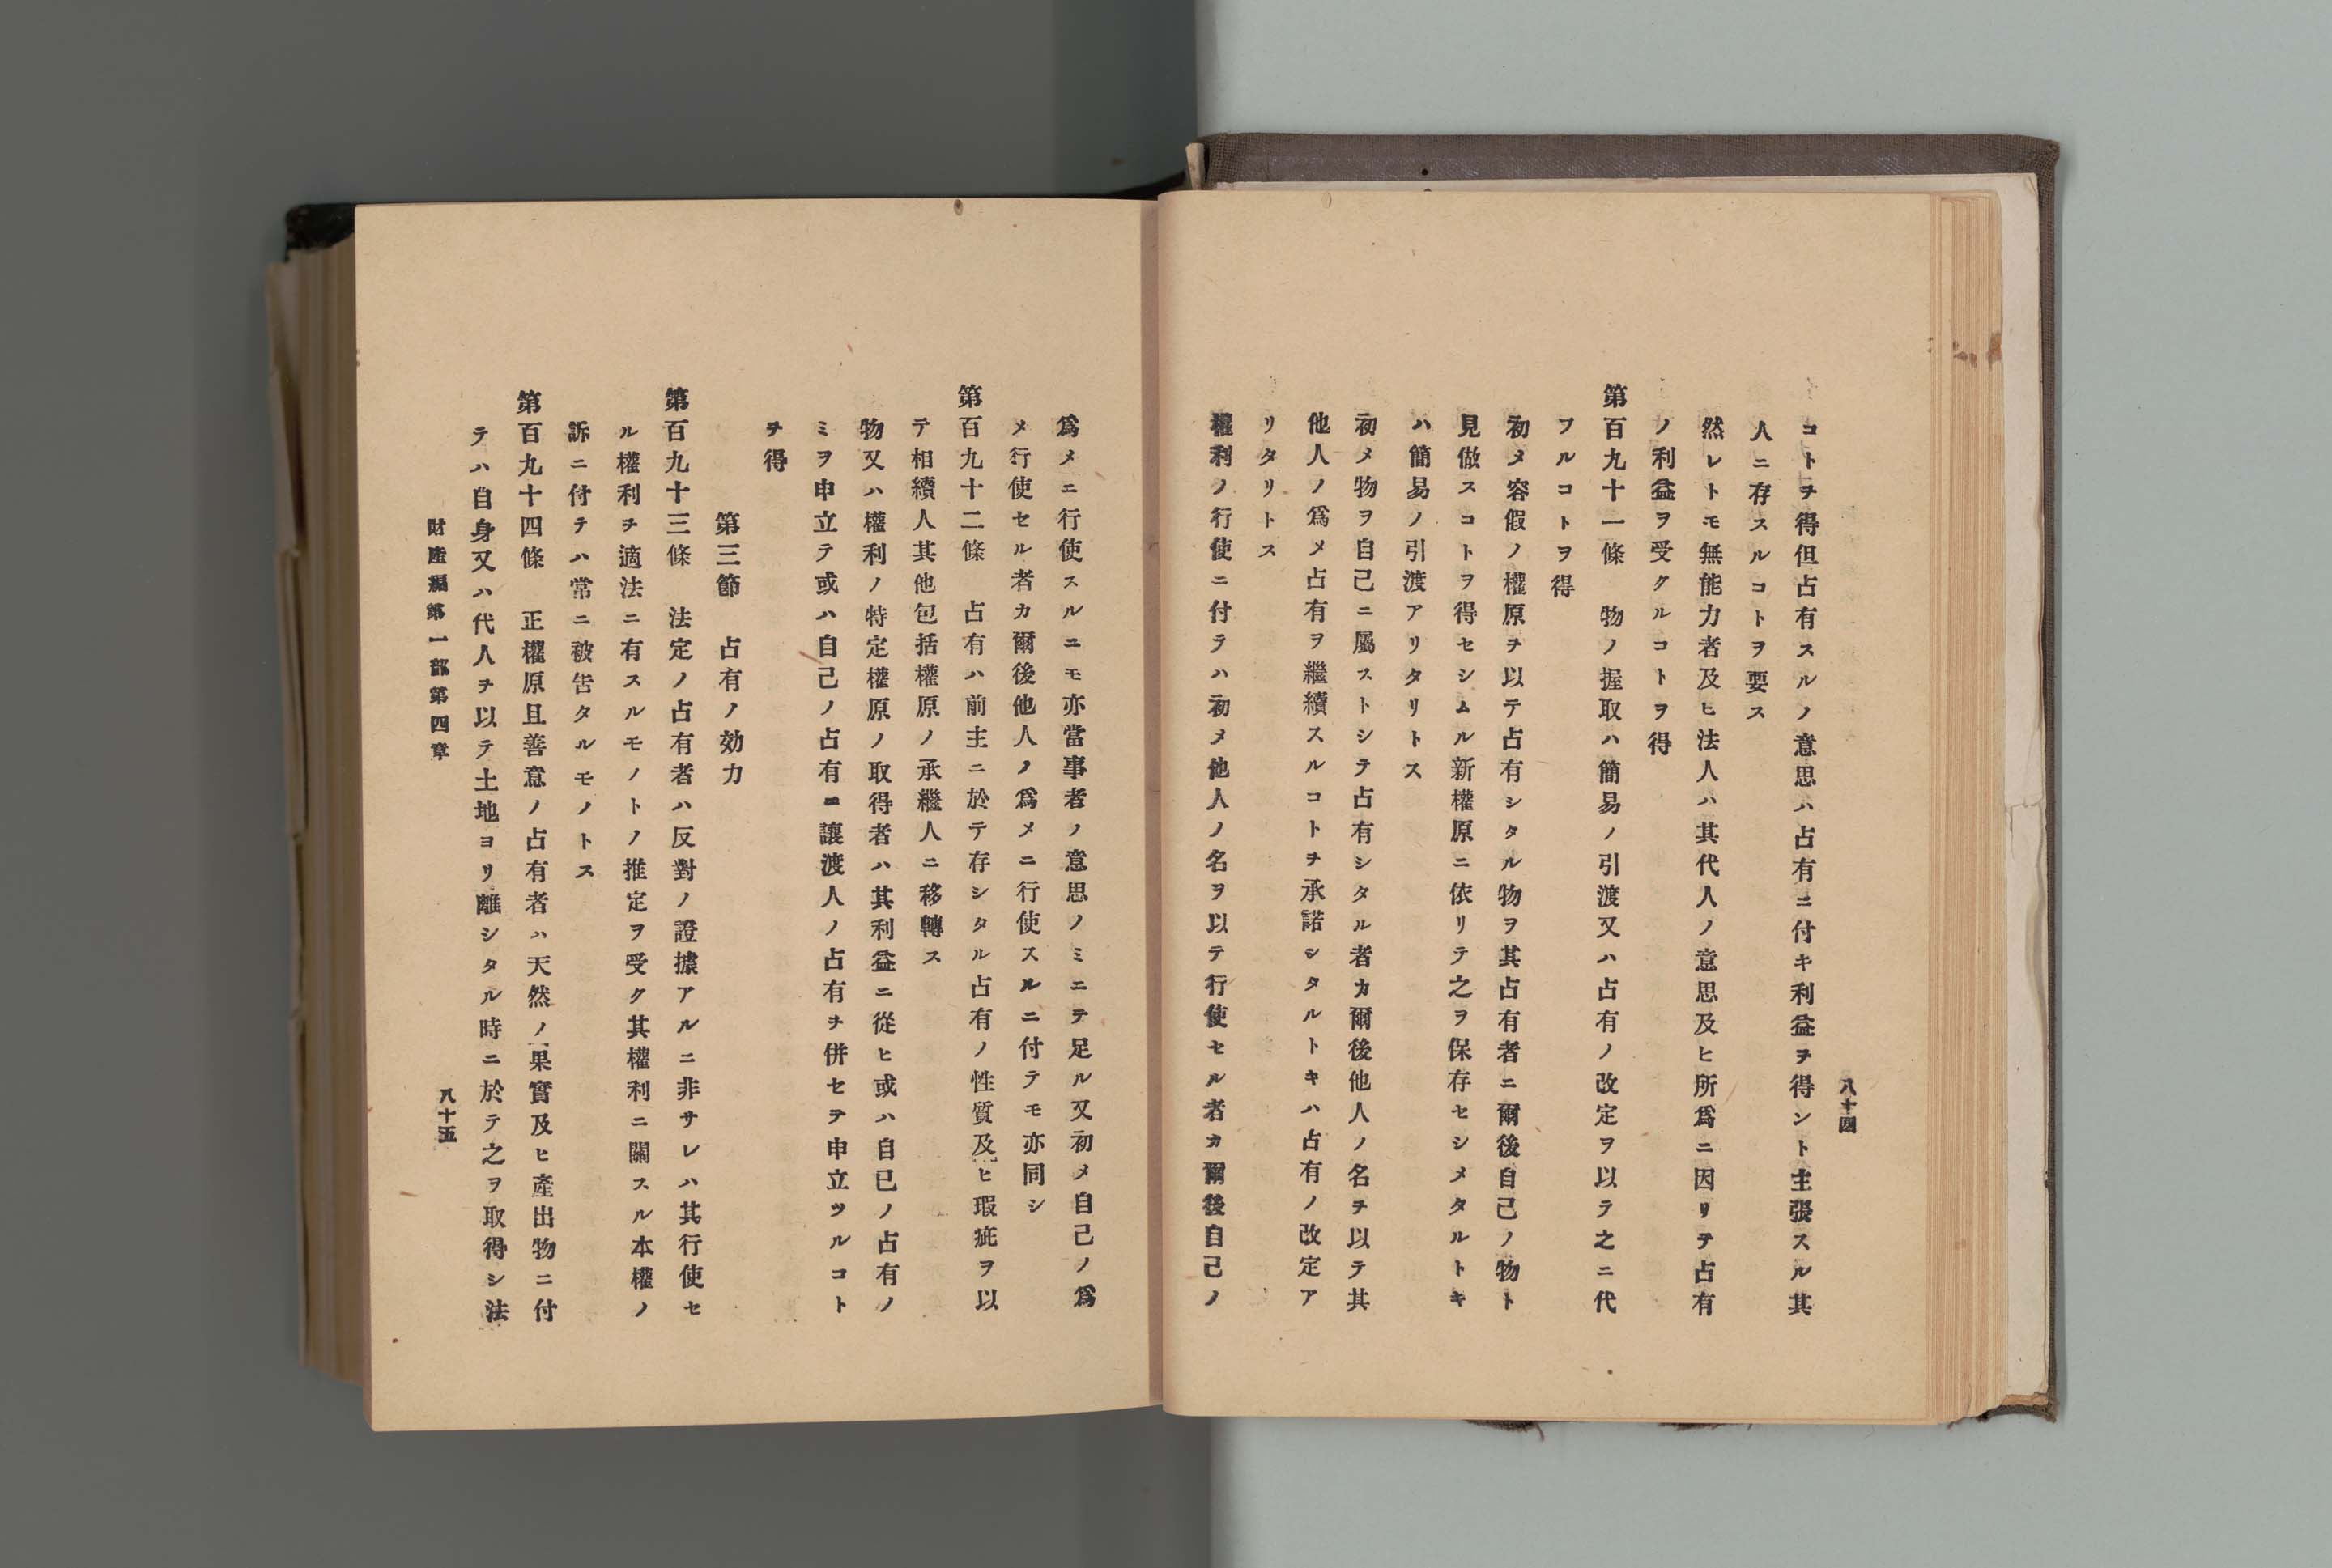 八十四
コトヲ得但占有スルノ意思ハ占有ニ付キ利益ヲ得ント主張スル其
人ニ存スルコトヲ要ス
然レトモ無能力者及ヒ法人ハ其代人ノ意思及ヒ所爲ニ因リテ占有
ノ利益ヲ受クルコトヲ得
第百九十一條　物ノ握取ハ簡易ノ引渡又ハ占有ノ改定ヲ以テ之ニ代
フルコトヲ得
初メ容假ノ權原ヲ以テ占有シタル物ヲ其占有者ニ爾後自己ノ物ト
見做スコトヲ得セシムル新權原ニ依リテ之ヲ保存セシメタルトキ
ハ簡易ノ引渡アリタリトス
初メ物ヲ自己ニ屬ストシテ占有シタル者カ爾後他人ノ名ヲ以テ其
他人ノ爲メ占有ヲ繼續スルコトヲ承諾シタルトキハ占有ノ改定ア
リタリトス
權利ノ行使ニ付テハ初メ他人ノ名ヲ以テ行使セル者カ爾後自己ノ
爲メニ行使スルニモ亦當事者ノ意思ノミニテ足ル又初メ自己ノ爲
メ行使セル者カ爾後他人ノ爲メニ行使スルニ付テモ亦同シ
第百九十二條　占有ハ前主ニ於テ存シタル占有ノ性質及ヒ瑕疵ヲ以
テ相續人其他包括權原ノ承繼人ニ移轉ス
物又ハ權利ノ特定權原ノ取得者ハ其利益ニ從ヒ或ハ自已ノ占有ノ
ミヲ申立テ或ハ自己ノ占有ニ讓渡人ノ占有ヲ併セテ申立ツルコト
ヲ得
第三節　占有ノ効力
第百九十三條　法定ノ占有者ハ反對ノ證據アルニ非サレハ其行使セ
ル權利ヲ適法ニ有スルモノトノ推定ヲ受ク其權利ニ關スル本權ノ
訴ニ付テハ常ニ被告タルモノトス
第百九十四條　正權原且善意ノ占有者ハ天然ノ果實及ヒ產出物ニ付
テハ自身又ハ代人ヲ以テ土地ヨリ離シタル時ニ於テ之ヲ取得シ法
財產編第一部第四章
八十五